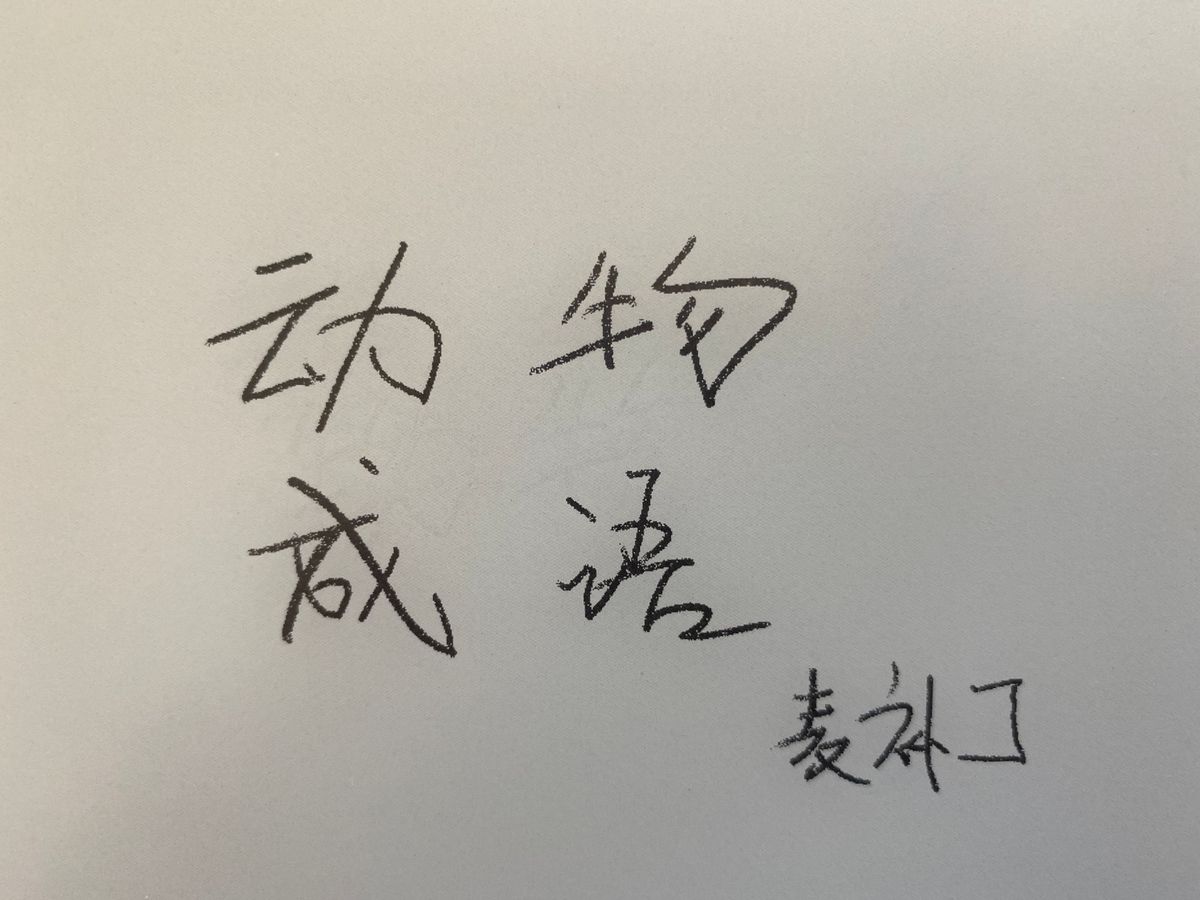 动物
成语
麦补丁